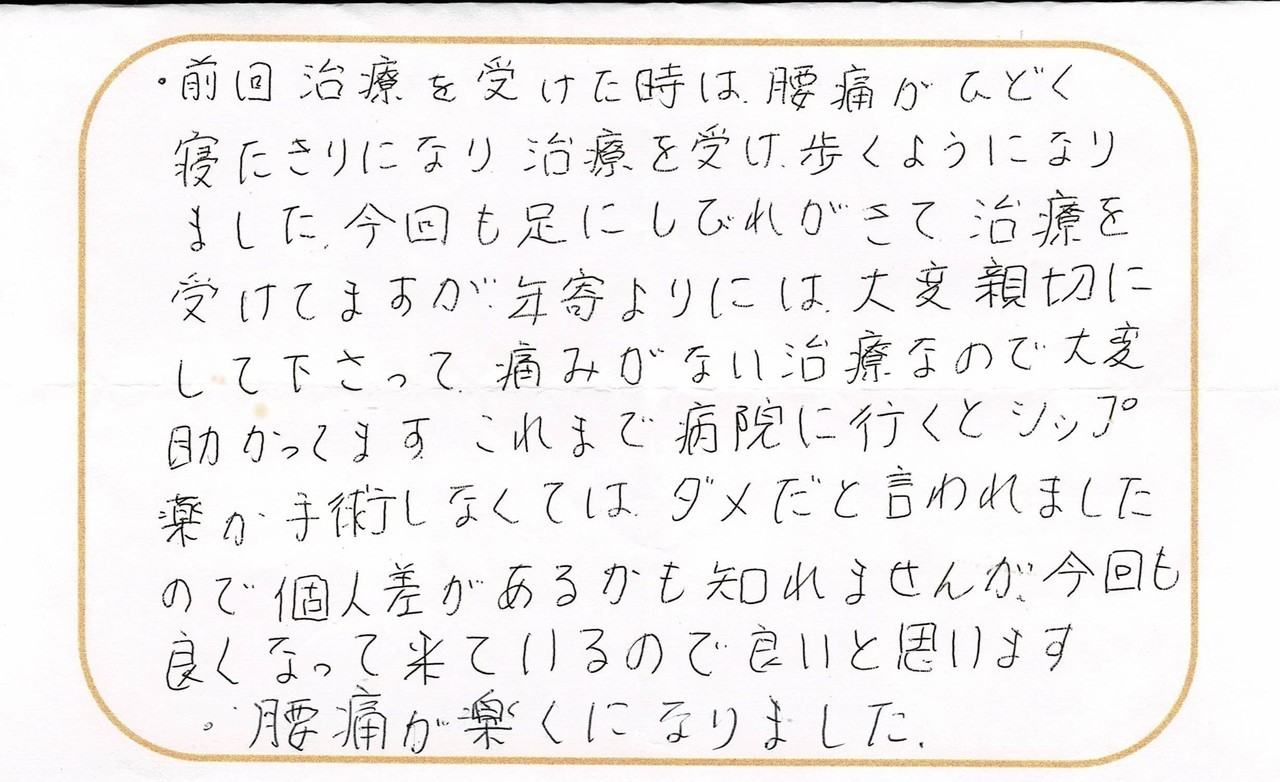 ・前回治療を受けた時は、腰痛がひどく
寝たきりになり、治療を受け、歩くようになり
ました。今回も足にしびれがきて、治療を
受けてますが、年寄よりには、大変親切に
して下さって、痛みがない治療なので大変
助かってます。これまで病院に行くとシップ
薬か手術しなくては、ダメだと言われました
ので個人差があるかも知れませんが、今回も
良くなって来ているので良いと思います
・腰痛が楽くになりました。